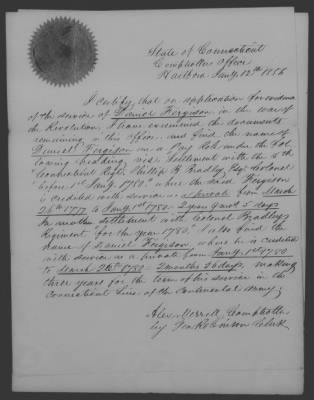 State of Connecticut
Comptrollers Office
Hartford Jany. 12th 1856
I certify, that on application for evidence
of the service of Daniel Ferguson in the war of
the Revolution, I have examined the documents
remaining in this office, and find the name of
Daniel Fergison on a Pay Roll under the fol
lowing heading, viz. Settlement with the 5th
Connecticut Regt. Phillip B. Bradley Esqr. Colonel
before 1st Jany. 1780. where the said Fergison
is credited with service as a private from March
26th 1777 to Jany 1st 1780 - 2 years 9 mos 5 days
In another settlement with Colonel Bradleys
Regiment for the year 1780. I also find the
name of Daniel Fergison, where he is credited
with service as a private from Jany. 1st 1780
to March 26th 1780 = 2 months 26 days, making
three years for the term of his service in the
Connecticut Line of the Continental Army;
Alex. Merrell Comptroller
by Clerk